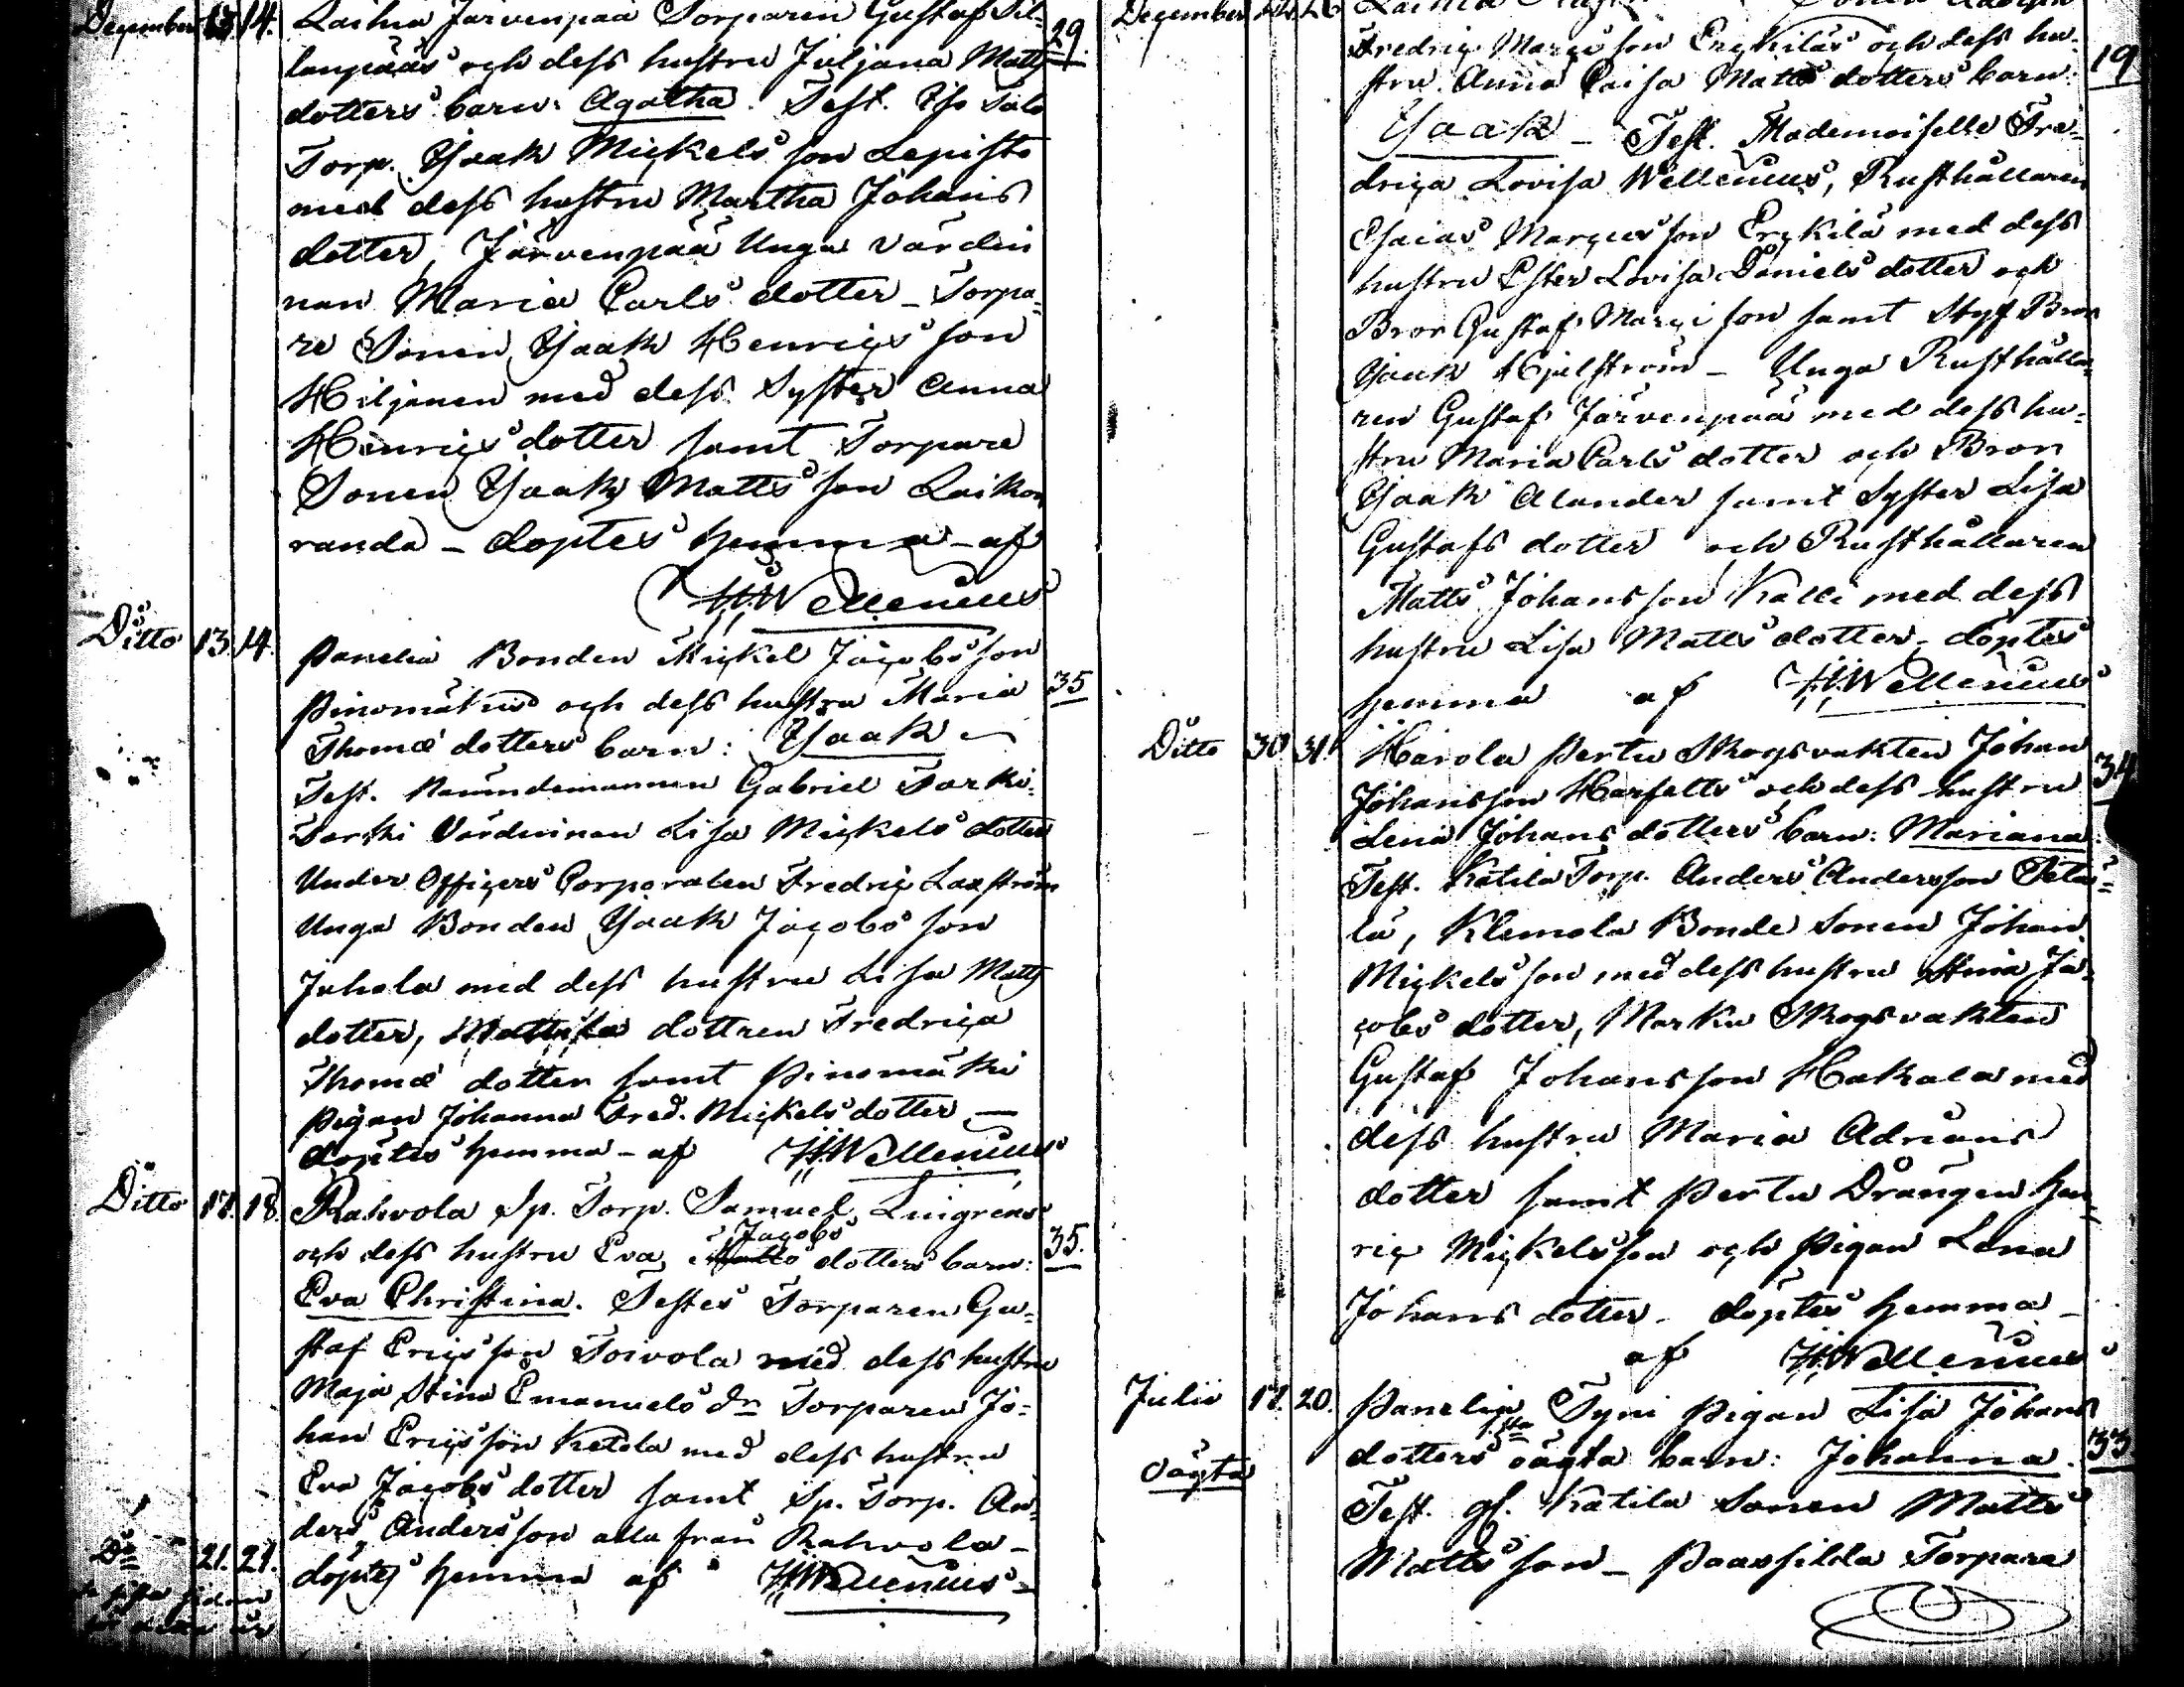 December 13. 14. Laihia Järvenpää Torparen Gustaf Sil-
lanpääs och dess hustru Juljana Matts 29.
dotters barn: Agatha. Test. Iso Talo
Torp. Isaak Mickels son Lepistö
med dess hustru Martha Johans
dotter, Järvenpää Unga värdin
nan Maria Carls dotter - Torpa-
re Sonen Isaak Henrics son
Hiljanen med dess Syster Anna
Henrics dotter samt Torpare
Sonen Isaak Matts son Laikon
randa - döptes hemma - af
HWellenius
Ditto 13. 14. Panelia Bonden Mickel Jacobs son
Pinomäkis och dess hustru Maria 35
Thomæ dotters barn: Isaak
Test. Nämndemannen Gabriel Tarki-
Tarki Värdinnan Lisa Mickels dotter
Under Officers Corporalen Fredric Laxström
Unga Bonden Isaak Jacobs son
Juhola med dess hustru Lisa Matts
dotter, Mattila dottren Fredrica
Thomæ dotter samt Pinomäki
Pigan Johanna Fred. Mickels dotter -
döptes hemma - af HWellenius
Ditto 17. 18. Rahvola Sp. Torp. Samuel Lingrens
Jacobs
och dess hustru Eva Matts dotters barn: 35.
Eva Christina. Testes Torparen Gu-
staf Erics son Toivola med dess hustru
Maja Stina Emanuels dr Torparen Jo-
han Erics son Ketola med dess hustru
Eva Jacobs dotter samt Sp. Torp. An-
ders Anders son alla från Rahvola -
Do 21. 21. döptes hemma af HWellenius
December 24. 26
Fredric Marcus son Erckiläs och dess hu- 19
stru Anna Caisa Matts dotters barn:
Isaak - Test. Mademoiselle Fre-
drica Lovisa Wellenius, Rusthållaren
Esaias Marcus son Erckilä med dess
hustru Ester Lovisa Daniels dotter och
Bror Gustaf Marci son samt Styf Bror
Isaak Hjelström - Unga Rusthålla-
ren Gustaf Järvenpää med dess hu-
stru Maria Carls dotter och Bron
Isaak Alander samt Syster Lisa
Gustafs dotter och Rusthållaren
Matts Johans son Kalli med dess
hustru Lisa Matts dotter - döptes
hemma af HWellenius
Ditto 30 31. Harola Pertu Skogsvakten Johan
Johansson Harfelts och dess hustru 34.
Lena Johans dotters barn: Mariana.
Test. Katila Torp. Anders Andersson Seta-
lä, Klemola Bonde Sonen Johan
Mickels son med dess hustru Stina Ja-
cobs dotter, Marku Skogsvakten
Gustaf Johans son Hakala med
dess hustru Maria Adrians
dotter samt Pertu Drängen Hen-
ric Mickelsson och Pigan Lena
Johans dotter - döptes hemma -
af HWellenius
Julii 17. 20. Panelia Tyni Pigan Lisa Johans
oägta dotters oägta barn: Johanna. 33
Test. gl. Katila Sonen Matts
Matts son - Paavsilda Torpare